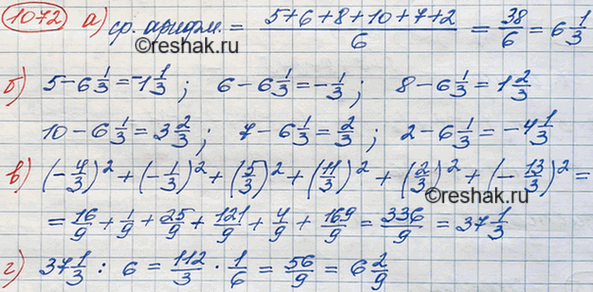 1072 а) ср. арифм. = (5+6+8+10+7+2)/6 = 38/6 = 6 1/3
©reshak.ru
б) 5 − 6 1/3 = −1 1/3; 6 − 6 1/3 = −1/3; 8 − 6 1/3 = 1 2/3
10 − 6 1/3 = 3 2/3; 7 − 6 1/3 = 2/3; 2 − 6 1/3 = −4 1/3
в) (−4/3)² + (−1/3)² + (5/3)² + (11/3)² + (2/3)² + (−13/3)² =
©reshak.ru
= 16/9 + 1/9 + 25/9 + 121/9 + 4/9 + 169/9 = 336/9 = 37 1/3
г) 37 1/3 : 6 = 112/3 · 1/6 = 56/9 = 6 2/9